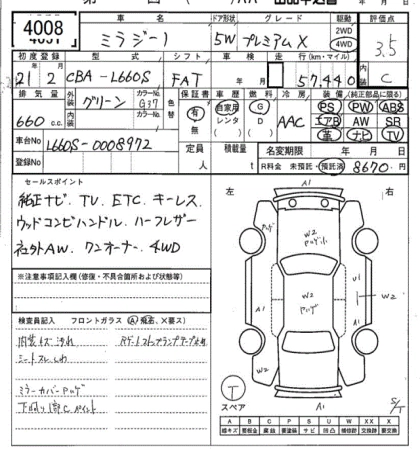 4008
車名
ミラジーノ
ドア形状
5W
グレード
プレミアムX
駆動
2WD
4WD
評価点
3.5
初度登録
型式
シフト
車検
走行(km・マイル)
21年2月
CBA-L660S
FAT
年
月
57,440
C
排気量
660 c.c.
外装
グリーン
カラーNo.
G37
内装
カラーNo.
色替
保証書
有
無
車歴
自家用
レンタ
燃料
G
D
冷房
AAC
装備(純正部品に限る)
PS
PW
ABS
エアB
AW
SR
革
ナビ
TV
車台No
L660S-0008972
登録No
定員
人
積載量
t
名変期限
年月日
R料金
未預託・預託済
8670円
セールスポイント
純正ナビ、TV、ETC、キーレス、
ウッドコンビハンドル、ハーフレザー
社外AW、ワンオーナー、4WD
※注意事項記入欄(修復・不具合箇所および状態等)
検査員記入
フロントガラス(A飛石、X要ス)
内装キズ・汚れ
シートスレ・しわ
ミラーカバー
下回り1部C
左
右
A1
W2
W2
U1
A1
W2
A1
W2
A1
T
スペア
S/T
A B C P S U W XX X
線キズ 要板金 腐蝕 要塗装 サビ 凹凸 補修跡 交換跡 要交換